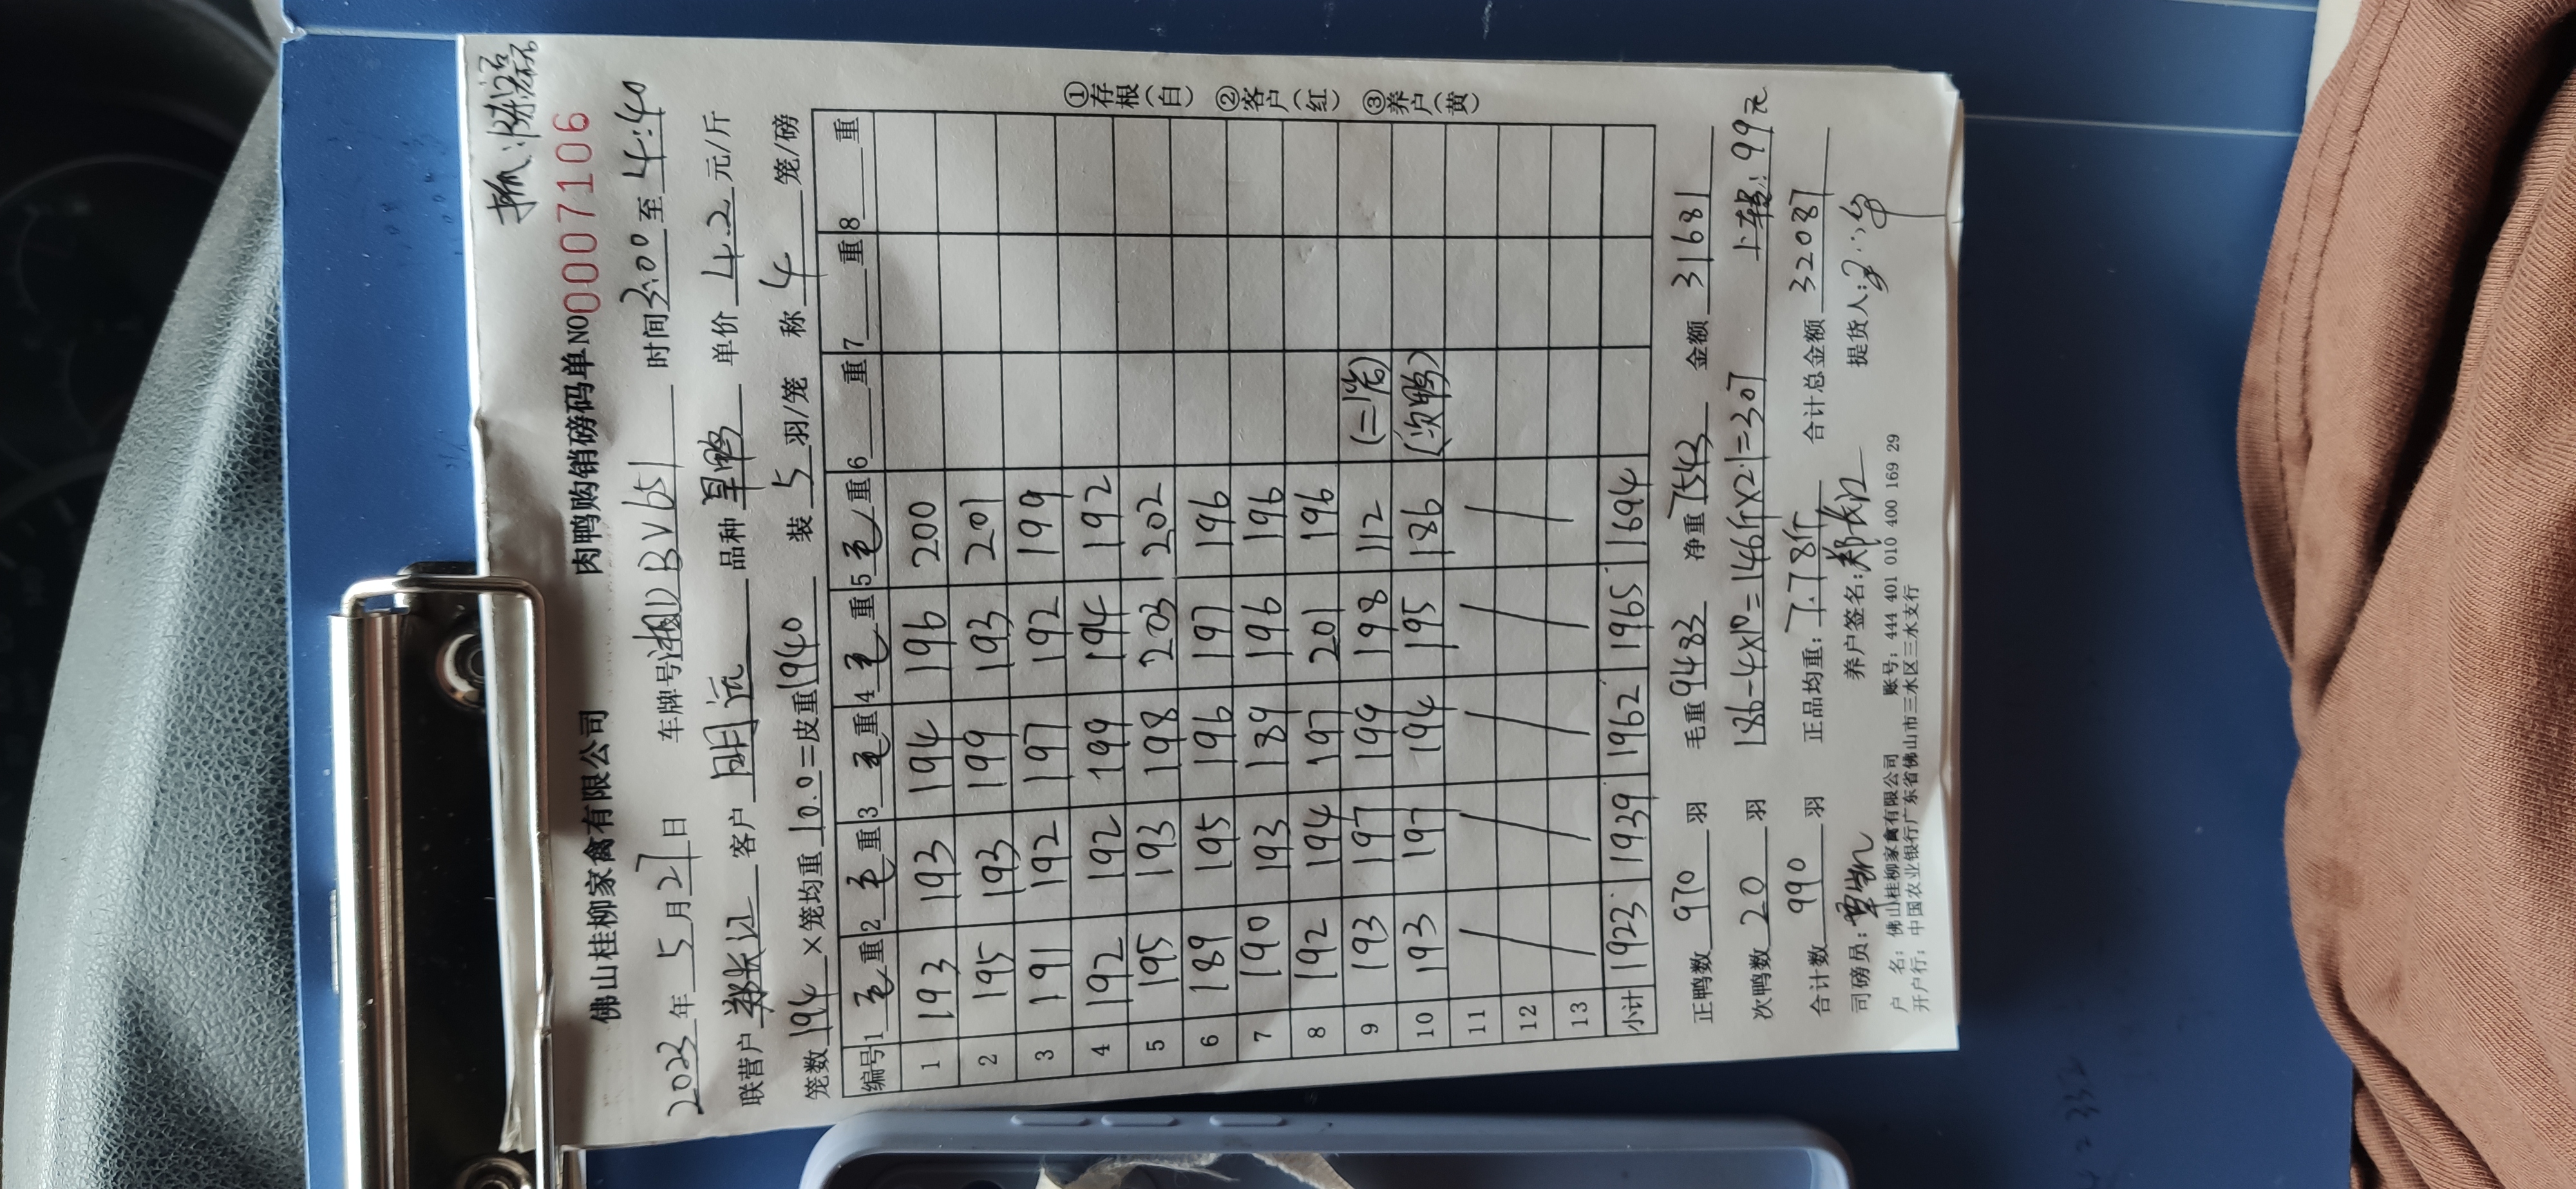 抓:陈磊
佛山桂柳家禽有限公司 肉鸭购销磅码单 NO 0007106
2023年5月27日 车牌号湘DBV651 时间3:00至4:40
联营户 郑长江 客户 明远 品种 旱鸭 单价 4.2 元/斤
笼数 194 ×笼均重 10.0 =皮重 1940 装 5 羽/笼 称 4 笼/磅
编号 1毛重 2毛重 3毛重 4毛重 5毛重 6 重 7 重 8 重
1 193 193 194 196 200
2 195 193 199 193 201
3 191 192 197 192 199
4 192 192 199 194 192
5 195 193 198 203 202
6 189 195 196 197 196
7 190 193 189 196 196
8 192 194 197 201 196
9 193 197 199 198 112 (二笼)
10 193 197 194 195 186 (次鸭)
11 / / / / /
12
13
小计 1923 1939 1962 1965 1694
①存根(白) ②客户(红) ③养户(黄)
正鸭数 970 羽 毛重 9483 净重 7543 金额 31681
次鸭数 20 羽 186-4×10=146斤×2.1=307 上车费:99元
合计数 990 羽 正品均重: 7.78斤 合计总金额 32087
司磅员: 养户签名:郑长江 提货人:
户 名: 佛山桂柳家禽有限公司 账号: 444 401 010 400 169 29
开户行: 中国农业银行广东省佛山市三水区三水支行